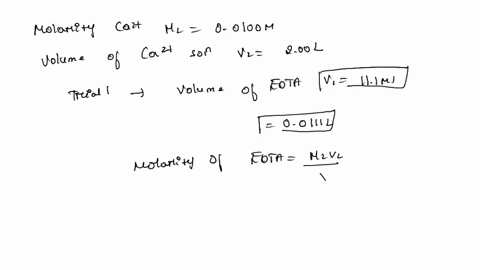 Molarity Ca2+ M2 = 0.0100M
Volume of Ca2+ soln V2 = 2.00L
Trial 1 → Volume of EDTA V1 = 11.1ml
= 0.0111L
Molarity of EDTA = M2V2
\